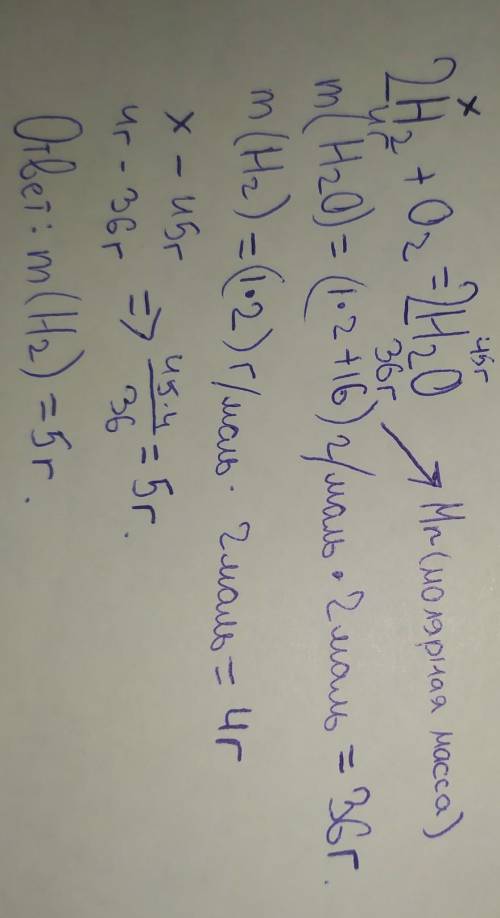 x 45г
2H₂ + O₂ = 2H₂O
4г 36г → Mr (молярная масса)
m(H₂O) = (1·2+16) г/маль · 2маль = 36г.
m(H₂) = (1·2) г/маль · 2маль = 4г
x – 45г
4г - 36г => 45·4/36 = 5г.
Ответ: m(H₂) = 5г.